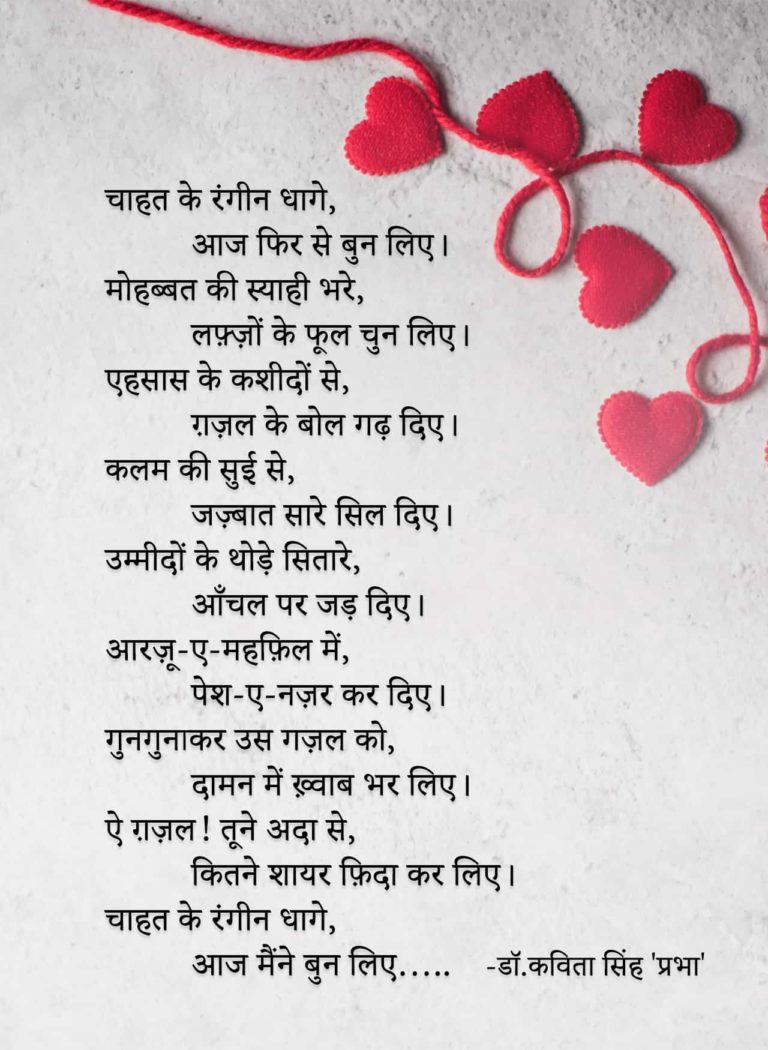 चाहत के रंगीन धागे,
आज फिर से बुन लिए।
मोहब्बत की स्याही भरे,
लफ़्ज़ों के फूल चुन लिए।
एहसास के कशीदों से,
ग़ज़ल के बोल गढ़ दिए।
कलम की सुई से,
जज़्बात सारे सिल दिए।
उम्मीदों के थोड़े सितारे,
आँचल पर जड़ दिए।
आरज़ू-ए-महफ़िल में,
पेश-ए-नज़र कर दिए।
गुनगुनाकर उस गज़ल को,
दामन में ख़्वाब भर लिए।
ऐ ग़ज़ल! तूने अदा से,
कितने शायर फ़िदा कर लिए।
चाहत के रंगीन धागे,
आज मैंने बुन लिए..... -डॉ.कविता सिंह 'प्रभा'